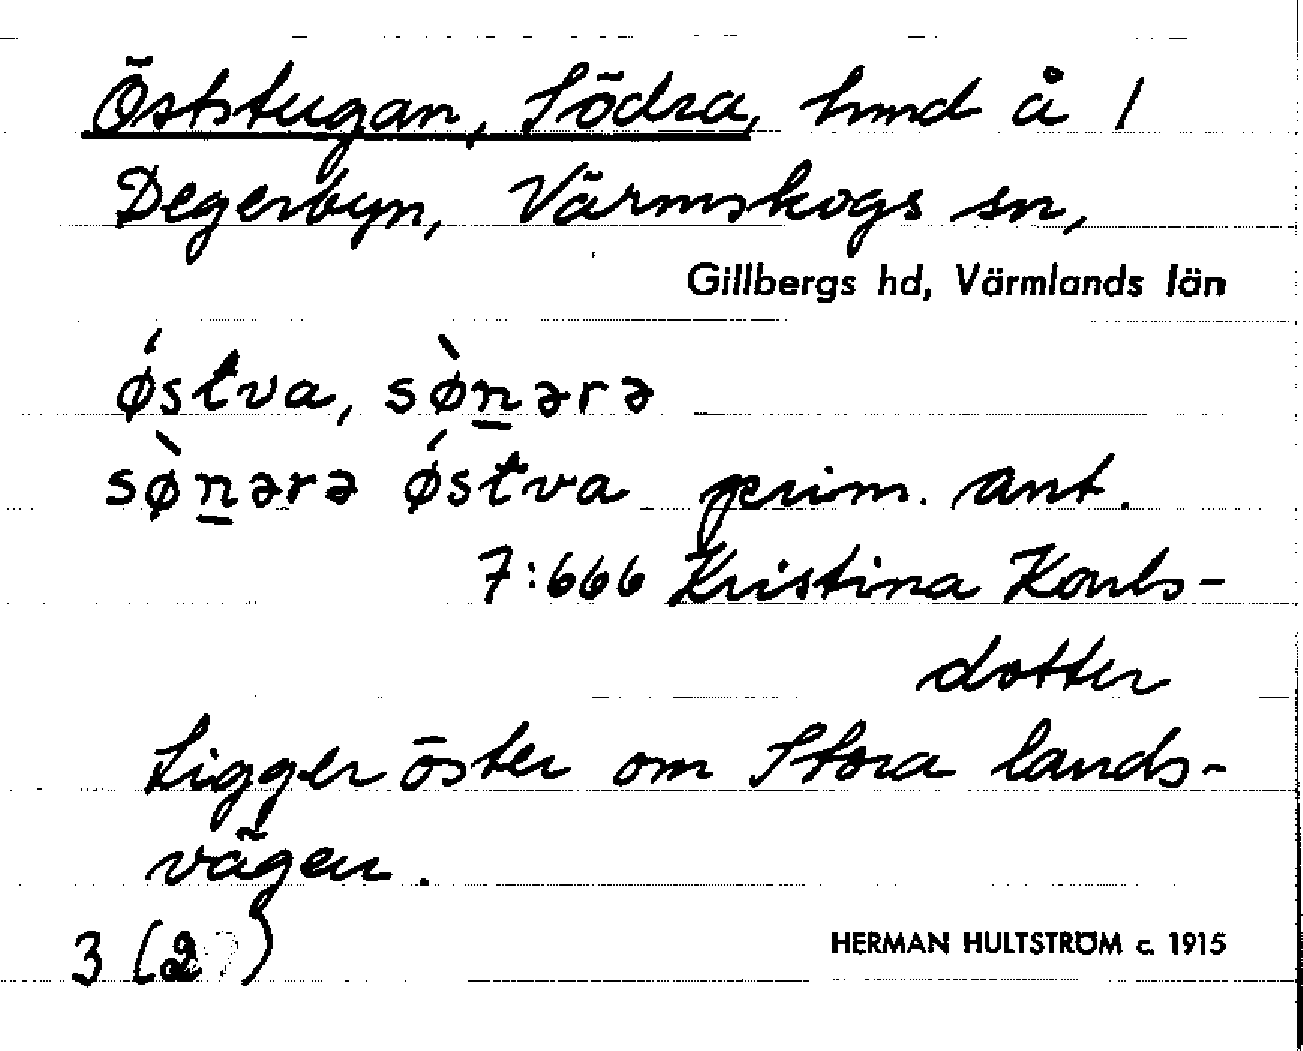 Öststugan, Södra, hmd å 1
Degerbyn, Värmskogs sn,
Gillbergs hd, Värmlands län
ǿstva, sø̀n̲ərə
sø̀n̲ərə ǿstva prim. ant.
7:666 Kristina Karls-
dotter
Ligger öster om Stora lands-
vägen.
3 (2)
HERMAN HULTSTRÖM c. 1915